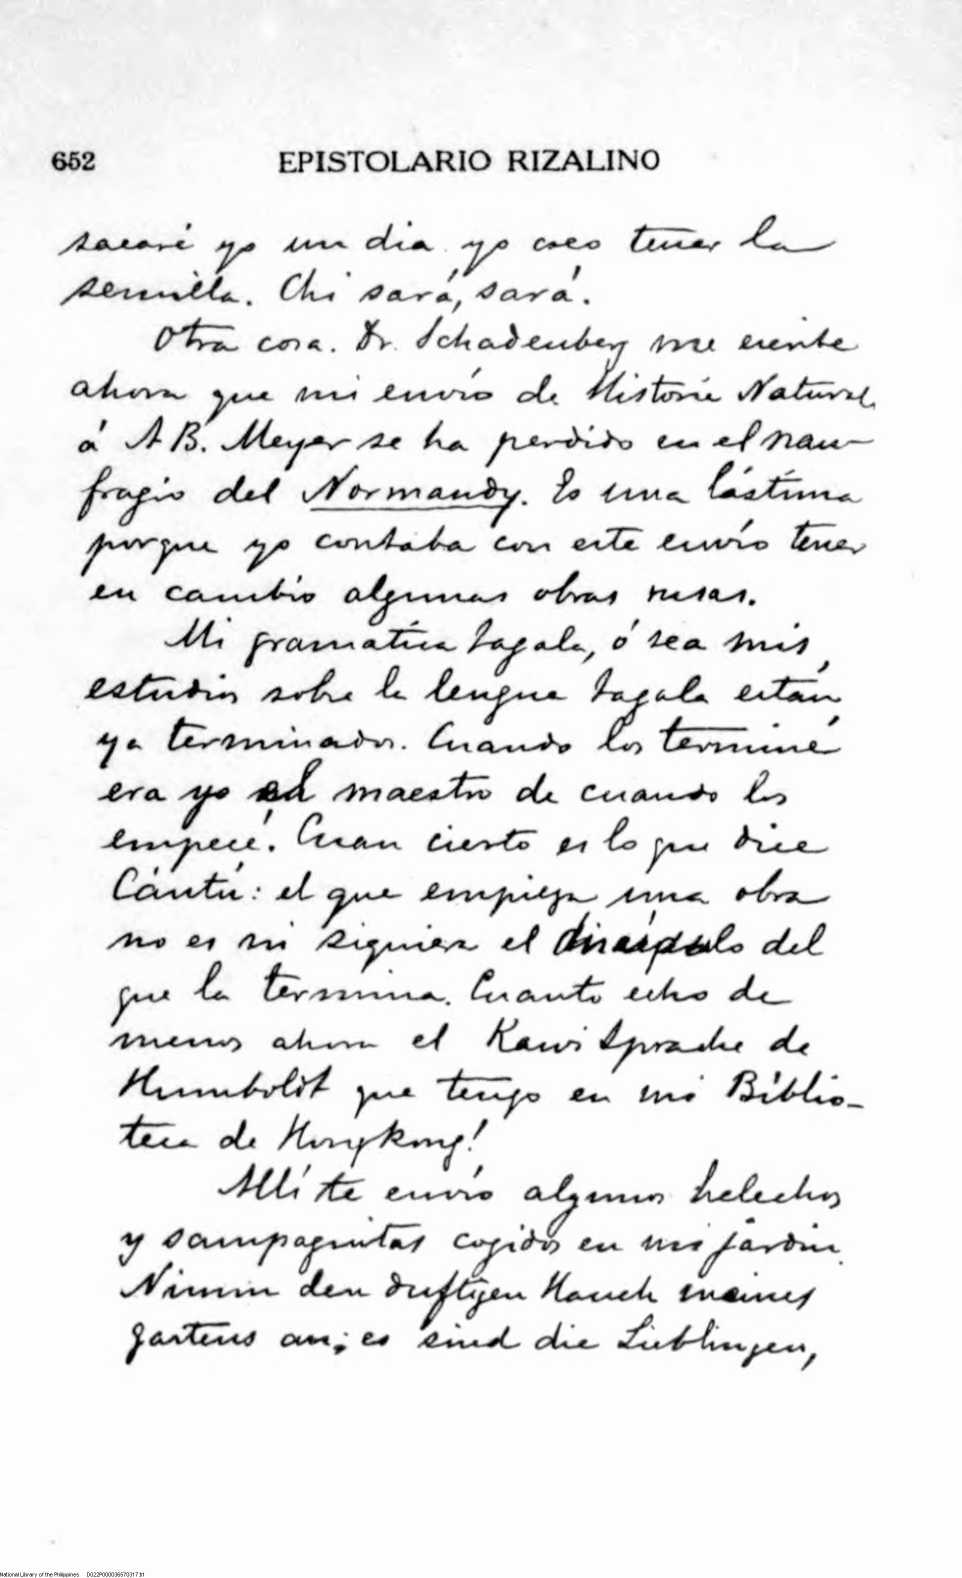 652 EPISTOLARIO RIZALINO
sacaré yo un dia yo creo tener la
semilla. Chi sará, sará.
Otra cosa. Dr. Schadenberg me escribe
ahora que mi envío de Historia Natural
á A B. Meyer se ha perdido en el nau-
fragio del Normandy. Es una lástima
porque yo contaba con este envío tener
en cambio algunas obras rusas.
Mi gramatica tagala, ó sea mis
estudios sobre la lengua tagala están
ya terminados. Cuando los terminé
era yo el maestro de cuando los
empecé. Cuan cierto es lo que dice
Cántú: el que empieza una obra
no es ni siquiera el discípulo del
que la termina. Cuanto echo de
menos ahora el Kawi Sprache de
Humboldt que tengo en mi Biblio-
teca de Hongkong!
Allí te envío algunos helechos
y sampaguitas cogidos en mi jardin
Nimm den duftigen Hauch meines
gartens an; es sind die Lieblingen,
National Library of the Philippines